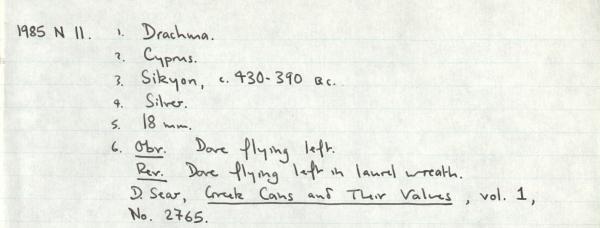 1985 N 11. 1. Drachma.
2. Cyprus.
3. Sikyon, c. 430-390 BC.
4. Silver.
5. 18 mm.
6. Obv. Dove flying left.
Rev. Dove flying left in laurel wreath.
D. Sear, Greek Coins and Their Values, vol. 1,
No. 2765.